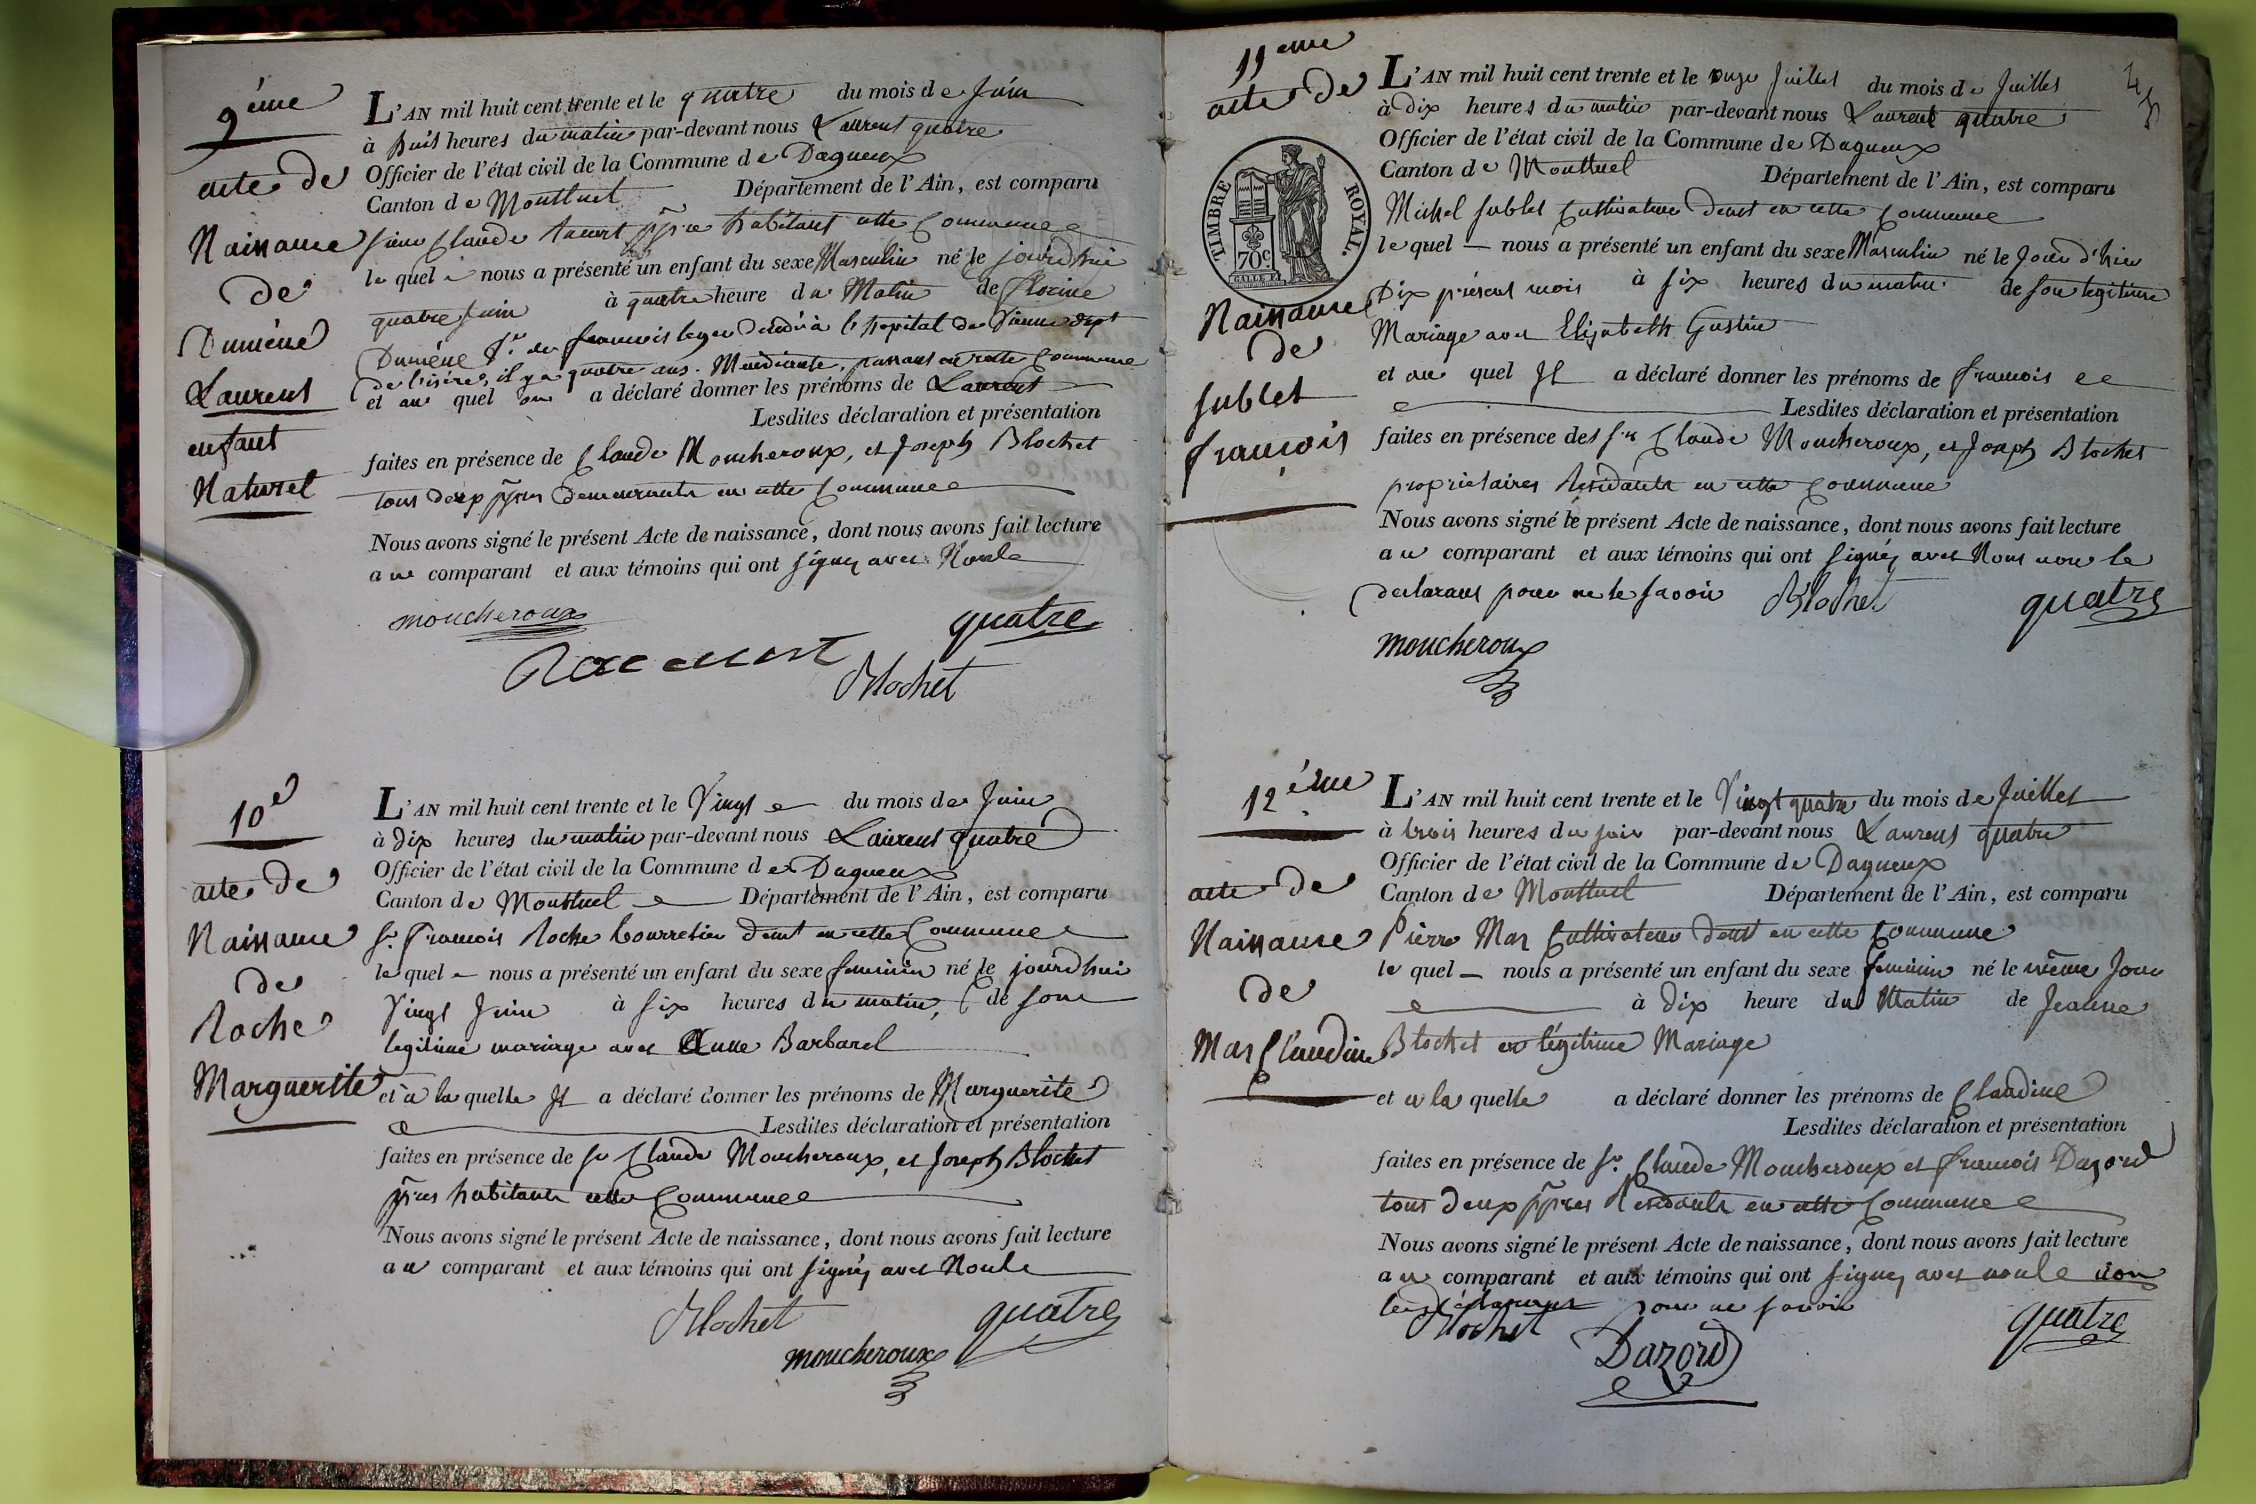 9ème
acte de
Naissance
de
Dumène
Laurent
enfant
Naturel
L'AN mil huit cent trente et le quatre du mois de Juin
à huit heures du matin par-devant nous Laurent quatre
Officier de l'état civil de la Commune de Dagneux
Canton de Montluel Département de l'Ain, est comparu
sieur Claude ppre habitant cette Commune
lequel nous a présenté un enfant du sexe Masculin né le jourdhui
quatre Juin à quatre heure du Matin de
Dumène de francois leger décédé à l'hopital de Vienne dept
de l'isère, il y a quatre ans. Mendiante, passant en cette Commune
et au quel on a déclaré donner les prénoms de Laurent
Lesdites déclaration et présentation
faites en présence de Claude Moucheroux, et Joseph Blochet
tous deux ppres demeurants en cette Commune
Nous avons signé le présent Acte de naissance, dont nous avons fait lecture
au comparant et aux témoins qui ont signés avec Nous
moucheroux
quatre
Blochet
10e
acte de
Naissance
de
Roche
Marguerite
L'AN mil huit cent trente et le Vingt du mois de Juin
à dix heures du matin par-devant nous Laurent quatre
Officier de l'état civil de la Commune de Dagneux
Canton de Montluel Département de l'Ain, est comparu
sr. francois Roche demt en cette Commune
lequel nous a présenté un enfant du sexe feminin né le jourdhui
Vingt Juin à six heures du matin, de son
legitime mariage avec Anne Barbarel
et a la quelle Il a déclaré donner les prénoms de Marguerite
Lesdites déclaration et présentation
faites en présence de sr Claude Moucheroux, et Joseph Blochet
ppres habitants cette Commune
Nous avons signé le présent Acte de naissance, dont nous avons fait lecture
au comparant et aux témoins qui ont signés avec Nous
Blochet
quatre
moucheroux
11eme
acte de
TIMBRE ROYAL.
70c
Naissance
de
Sublet
francois
L'AN mil huit cent trente et le onze Juillet du mois de Juillet
à dix heures du matin par-devant nous Laurent quatre
Officier de l'état civil de la Commune de Dagneux
Canton de Montluel Département de l'Ain, est comparu
Michel Sublet Cultivateur demt en cette Commune
lequel nous a présenté un enfant du sexe Masculin né le Jour d'hier
Dix présent mois à six heures du matin de son legitime
Mariage avec Elizabeth Gustin
et au quel Il a déclaré donner les prénoms de francois
Lesdites déclaration et présentation
faites en présence des srs Claude Moucheroux, et Joseph Blochet
proprietaires Residants en cette Commune
Nous avons signé le présent Acte de naissance, dont nous avons fait lecture
au comparant et aux témoins qui ont signés avec Nous non le
declarant pour ne le savoir
Blochet
quatre
moucheroux
12ème
acte de
Naissance
de
Mas Claudine
L'AN mil huit cent trente et le Vingt quatre du mois de Juillet
à trois heures du soir par-devant nous Laurent quatre
Officier de l'état civil de la Commune de Dagneux
Canton de Montluel Département de l'Ain, est comparu
Pierre Mas Cultivateur demt en cette Commune
lequel nous a présenté un enfant du sexe feminin né le même Jour
à dix heure du Matin de Jeanne
Blochet en légitime Mariage
et a la quelle a déclaré donner les prénoms de Claudine
Lesdites déclaration et présentation
faites en présence de sr. Claude Moucheroux et francois Dazord
tous deux ppres Residants en cette Commune
Nous avons signé le présent Acte de naissance, dont nous avons fait lecture
au comparant et aux témoins qui ont signés avec nous non
le déclarant pour ne savoir
Blochet
Dazord
quatre